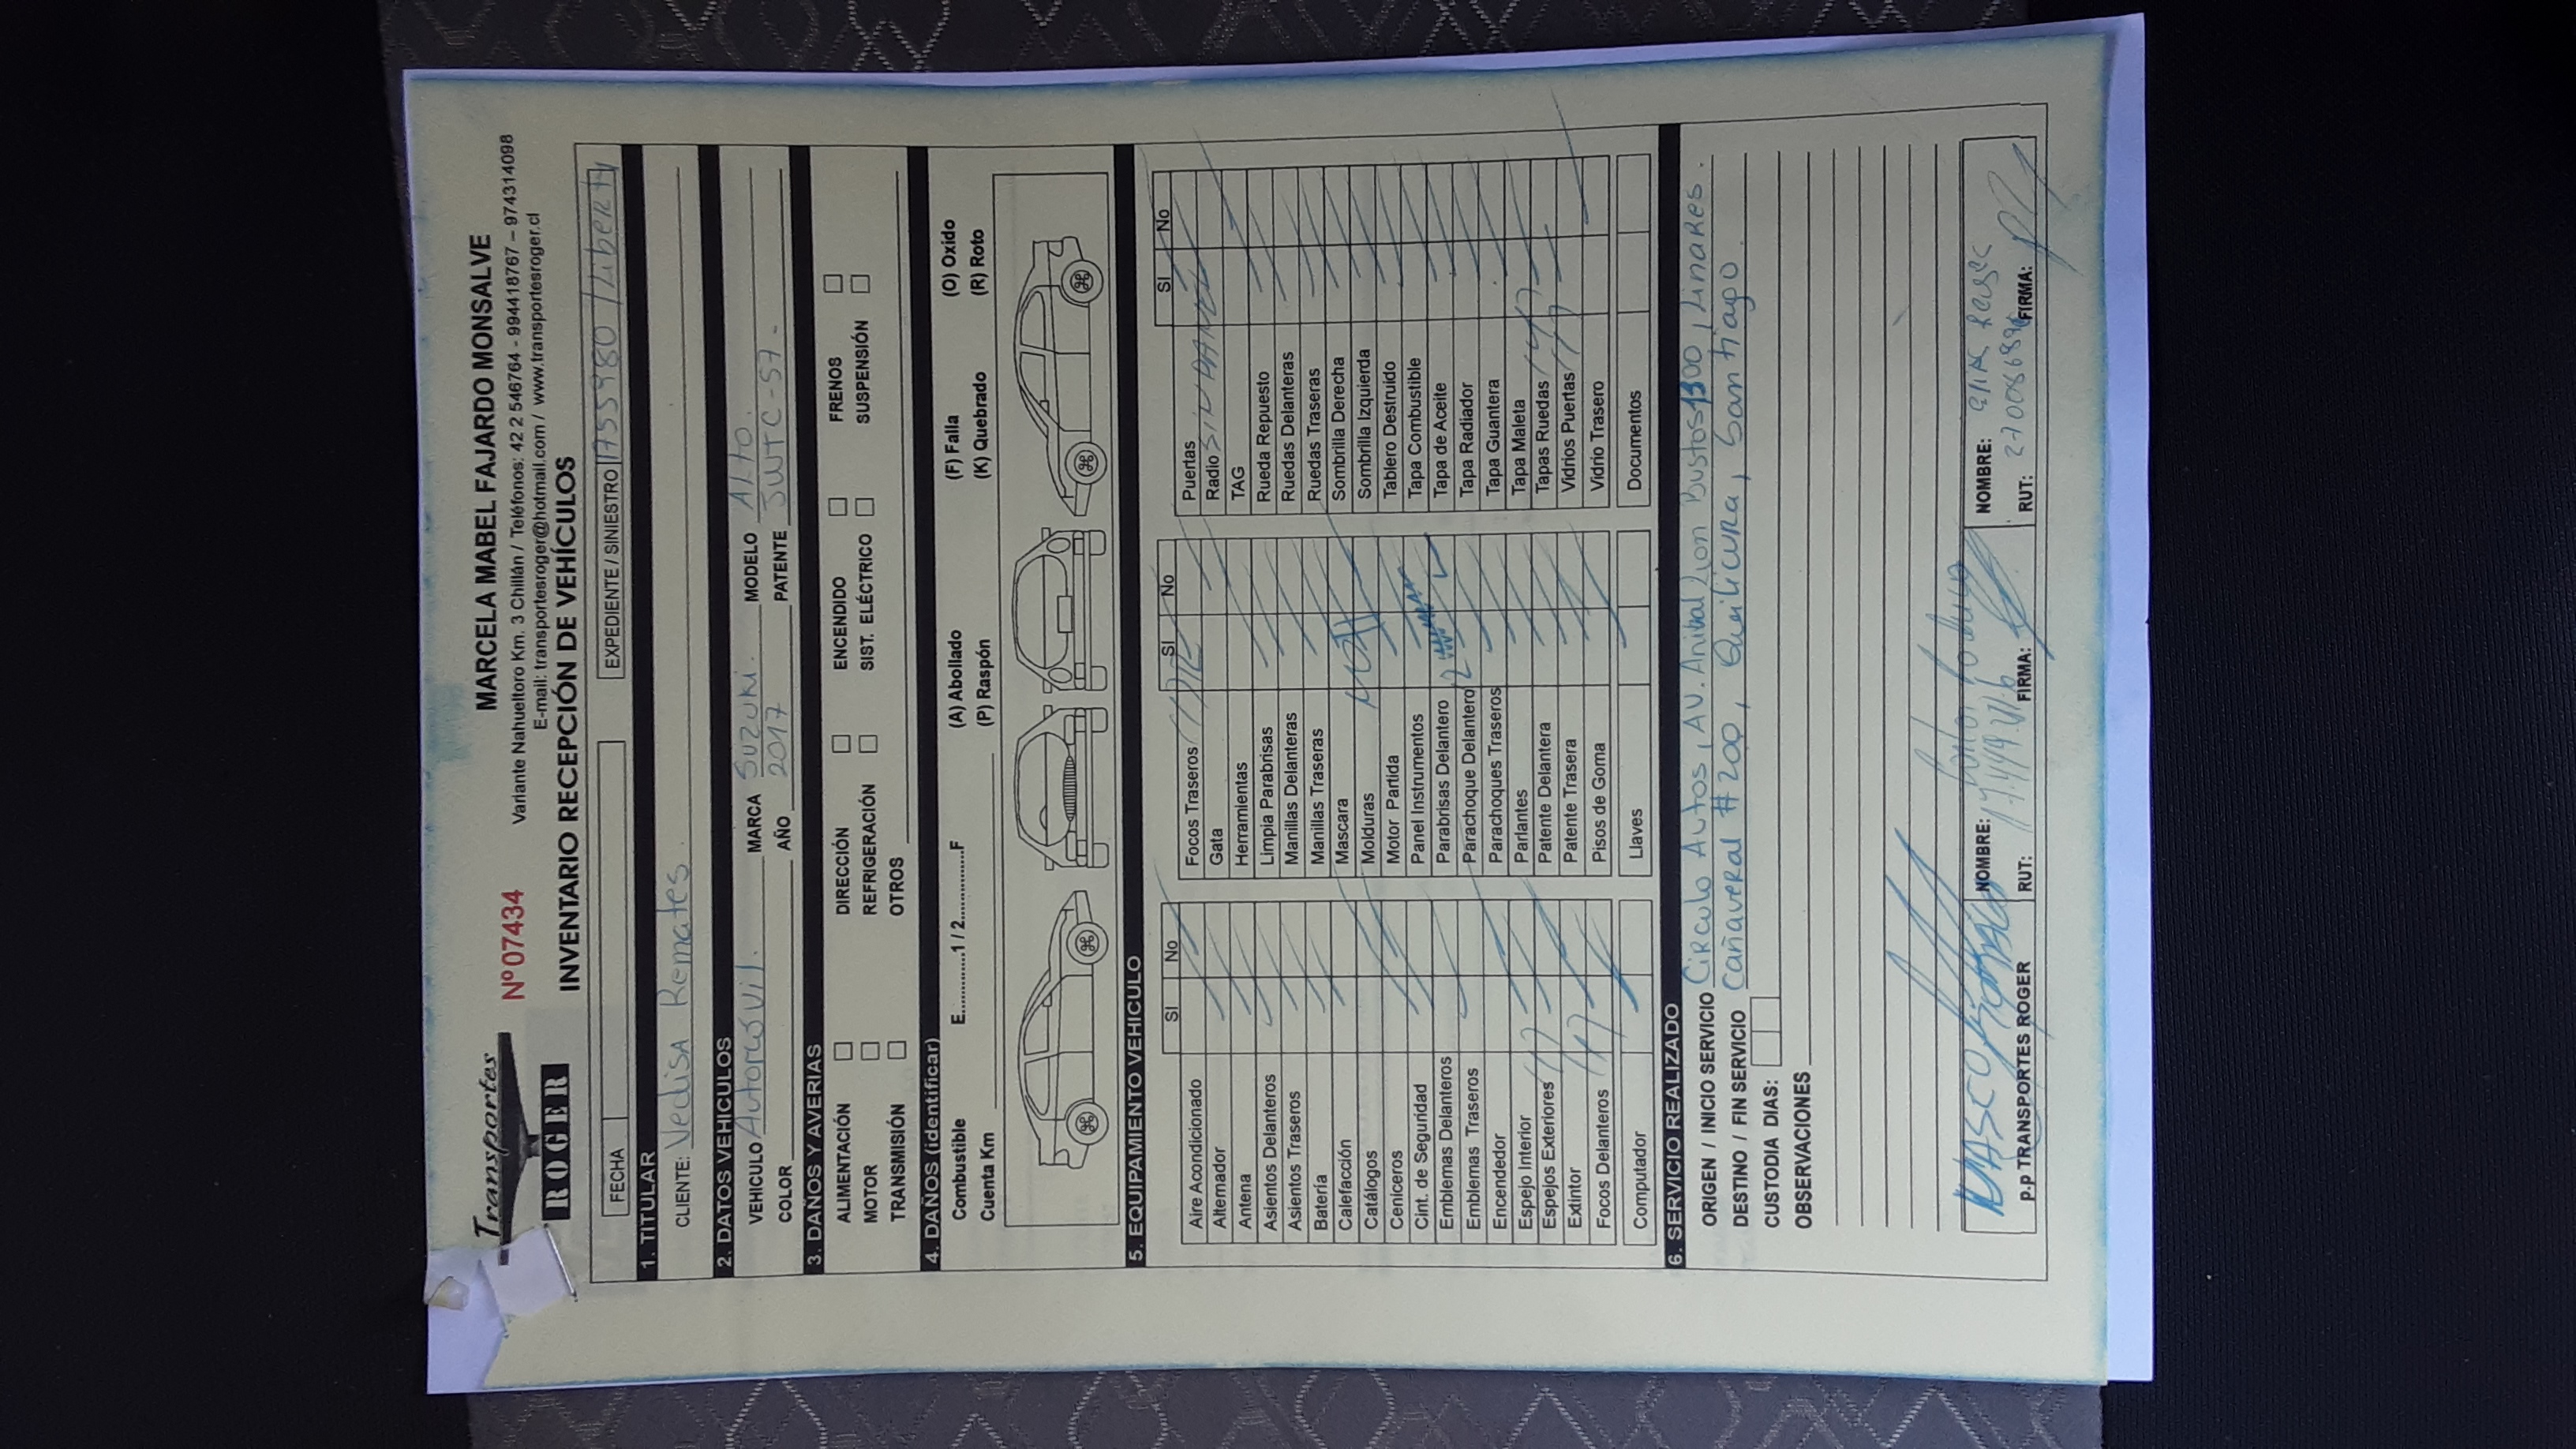 Transportes
ROGER
N° 07434
MARCELA MABEL FAJARDO MONSALVE
Variante Nahueltoro Km. 3 Chillán / Teléfonos: 42 2 546764 - 994418767 – 974314098
E-mail: transportesroger@hotmail.com / www.transportesroger.cl
INVENTARIO RECEPCIÓN DE VEHÍCULOS
FECHA EXPEDIENTE / SINIESTRO 1755980 / Liberty
1. TITULAR
CLIENTE: Vedisa Remates.
2. DATOS VEHICULOS
VEHICULO Automóvil. MARCA Suzuki. MODELO Alto.
COLOR AÑO 2017 PATENTE JWTC-57-
3. DAÑOS Y AVERIAS
ALIMENTACIÓN DIRECCIÓN ENCENDIDO FRENOS
MOTOR REFRIGERACIÓN SIST. ELÉCTRICO SUSPENSIÓN
TRANSMISIÓN OTROS
4. DAÑOS (identificar)
Combustible E............1 / 2.............F (A) Abollado (F) Falla (O) Oxido
Cuenta Km (P) Raspón (K) Quebrado (R) Roto
5. EQUIPAMIENTO VEHICULO
SI No
Aire Acondicionado
Alternador
Antena
Asientos Delanteros
Asientos Traseros
Batería
Calefacción
Catálogos
Ceniceros
Cint. de Seguridad
Emblemas Delanteros
Emblemas Traseros
Encendedor
Espejo Interior
Espejos Exteriores
Extintor
Focos Delanteros
Computador
SI No
Focos Traseros
Gata
Herramientas
Limpia Parabrisas
Manillas Delanteras
Manillas Traseras
Mascara
Molduras
Motor Partida
Panel Instrumentos
Parabrisas Delantero
Parachoque Delantero
Parachoques Traseros
Parlantes
Patente Delantera
Patente Trasera
Pisos de Goma
Llaves
SI No
Puertas
Radio SIN PANEL
TAG
Rueda Repuesto
Ruedas Delanteras
Ruedas Traseras
Sombrilla Derecha
Sombrilla Izquierda
Tablero Destruido
Tapa Combustible
Tapa de Aceite
Tapa Radiador
Tapa Guantera
Tapa Maleta
Tapas Ruedas
Vidrios Puertas
Vidrio Trasero
Documentos
6. SERVICIO REALIZADO
ORIGEN / INICIO SERVICIO Circulo Autos, AV. Anibal Leon Bustos 1300, Linares.
DESTINO / FIN SERVICIO Cañaveral # 200, Quilicura, Santiago.
CUSTODIA DIAS:
OBSERVACIONES
p.p TRANSPORTES ROGER
NOMBRE:
RUT: FIRMA:
NOMBRE:
RUT: FIRMA: